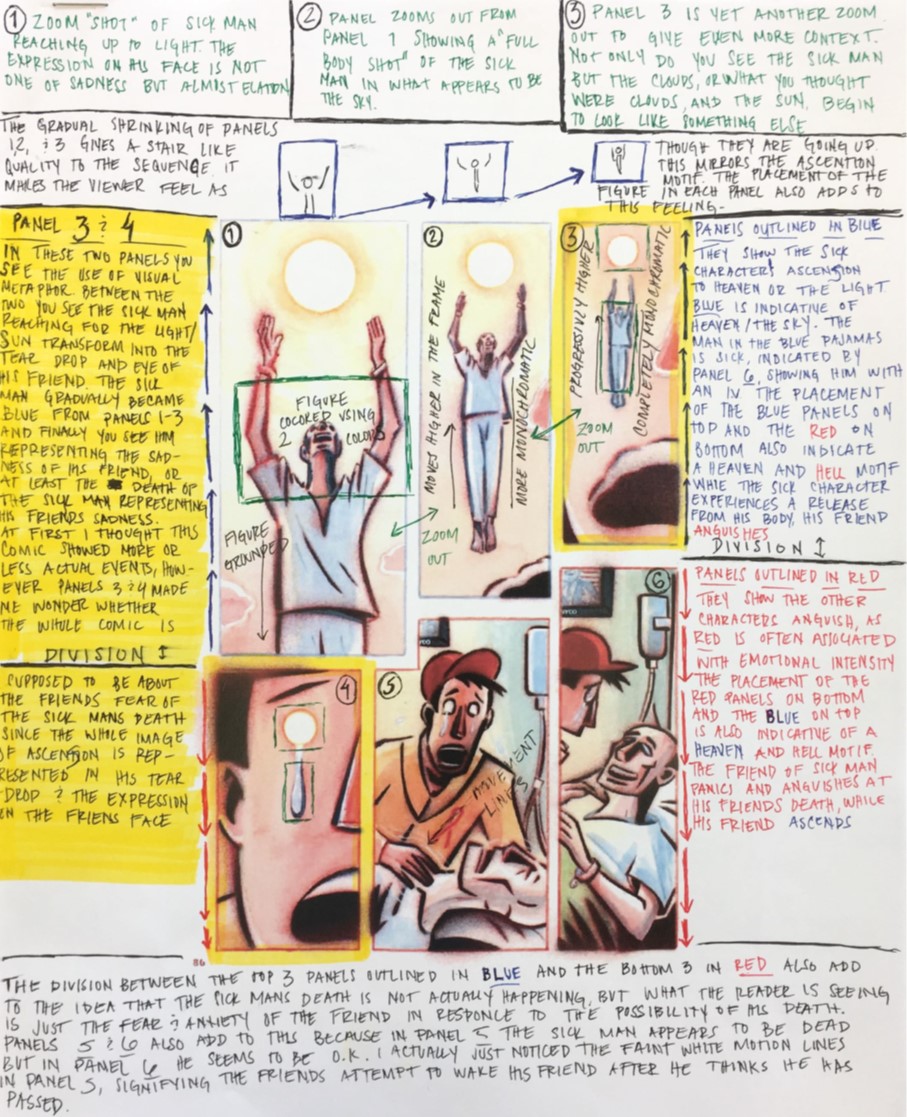 ① ZOOM "SHOT" OF SICK MAN
REACHING UP TO LIGHT. THE
EXPRESSION ON HIS FACE IS NOT
ONE OF SADNESS BUT ALMOST ELATION
② PANEL ZOOMS OUT FROM
PANEL 1 SHOWING A "FULL
BODY SHOT" OF THE SICK
MAN IN WHAT APPEARS TO BE
THE SKY.
③ PANEL 3 IS YET ANOTHER ZOOM
OUT TO GIVE EVEN MORE CONTEXT.
NOT ONLY DO YOU SEE THE SICK MAN
BUT THE CLOUDS, OR WHAT YOU THOUGHT
WERE CLOUDS, AND THE SUN. BEGIN
TO LOOK LIKE SOMETHING ELSE
THE GRADUAL SHRINKING OF PANELS
1,2, & 3 GIVES A STAIR LIKE
QUALITY TO THE SEQUENCE. IT
MAKES THE VIEWER FEEL AS
THOUGH THEY ARE GOING UP.
THIS MIRRORS THE ASCENTION
MOTIF. THE PLACEMENT OF THE
FIGURE IN EACH PANEL ALSO ADDS TO
THIS FEELING-
PANEL 3 & 4
IN THESE TWO PANELS YOU
SEE THE USE OF VISUAL
METAPHOR BETWEEN THE
TWO YOU SEE THE SICK MAN
REACHING FOR THE LIGHT/
SUN TRANSFORM INTO THE
TEAR DROP AND EYE OF
HIS FRIEND. THE SICK
MAN GRADUALLY BECAME
BLUE FROM PANELS 1-3
AND FINALLY YOU SEE HIM
REPRESENTING THE SAD-
NESS OF HIS FRIEND, OR
AT LEAST THE DEATH OF
THE SICK MAN REPRESENTING
HIS FRIENDS SADNESS.
AT FIRST I THOUGHT THIS
COMIC SHOWED MORE OR
LESS ACTUAL EVENTS, HOW-
EVER PANELS 3 & 4 MADE
ME WONDER WHETHER
THE WHOLE COMIC IS
DIVISION ↕
SUPPOSED TO BE ABOUT
THE FRIENDS FEAR OF
THE SICK MANS DEATH
SINCE THE WHOLE IMAGE
OF ASCENSION IS REP-
RESENTED IN HIS TEAR
DROP & THE EXPRESSION
ON THE FRIENS FACE
①
FIGURE
COLORED USING
2 COLORS
FIGURE
GROUNDED
ZOOM
OUT
②
MOVES HIGHER IN THE FRAME
MORE MONOCHROMATIC
③
PROGRESSIVLY HIGHER
COMPLETELY MONOCHROMATIC
ZOOM
OUT
④
⑤
MOVEMENT
LINES
⑥
PANELS OUTLINED IN BLUE
THEY SHOW THE SICK
CHARACTERS ASCENSION
TO HEAVEN OR THE LIGHT
BLUE IS INDICATIVE OF
HEAVEN/THE SKY. THE
MAN IN THE BLUE PAJAMAS
IS SICK, INDICATED BY
PANEL 6, SHOWING HIM WITH
AN IV. THE PLACEMENT
OF THE BLUE PANELS ON
TOP AND THE RED ON
BOTTOM ALSO INDICATE
A HEAVEN AND HELL MOTIF
WHIE THE SICK CHARACTER
EXPERIENCES A RELEASE
FROM HIS BODY, HIS FRIEND
ANGUISHES
DIVISION ↕
PANELS OUTLINED IN RED
THEY SHOW THE OTHER
CHARACTERS ANGUISH, AS
RED IS OFTEN ASSOCIATED
WITH EMOTIONAL INTENSITY
THE PLACEMENT OF THE
RED PANELS ON BOTTOM
AND THE BLUE ON TOP
IS ALSO INDICATIVE OF A
HEAVEN AND HELL MOTIF.
THE FRIEND OF SICK MAN
PANICS AND ANGUISHES AT
HIS FRIENDS DEATH, WHILE
HIS FRIEND ASCENDS
116
THE DIVISION BETWEEN THE TOP 3 PANELS OUTLINED IN BLUE AND THE BOTTOM 3 IN RED ALSO ADD
TO THE IDEA THAT THE SICK MANS DEATH IS NOT ACTUALLY HAPPENING, BUT WHAT THE READER IS SEEING
IS JUST THE FEAR & ANXIETY OF THE FRIEND IN RESPONCE TO THE POSSIBILITY OF HIS DEATH.
PANELS 5 & 6 ALSO ADD TO THIS BECAUSE IN PANEL 5 THE SICK MAN APPEARS TO BE DEAD
BUT IN PANEL 6 HE SEEMS TO BE O.K. I ACTUALLY JUST NOTICED THE FAINT WHITE MOTION LINES
IN PANEL 5, SIGNIFYING THE FRIENDS ATTEMPT TO WAKE HIS FRIEND AFTER HE THINKS HE HAS
PASSED.